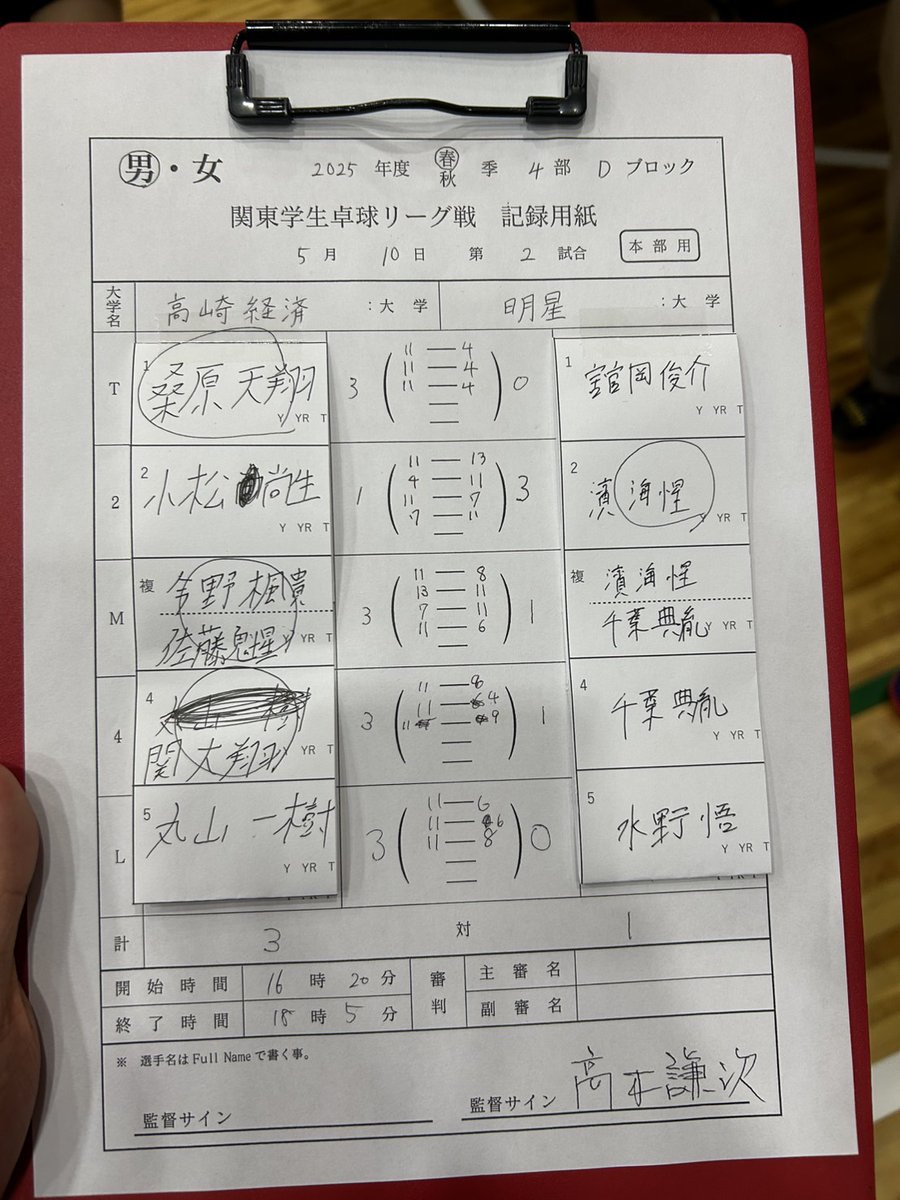 男・女 2025 年度 春 秋 季 4 部 D ブロック
関東学生卓球リーグ戦 記録用紙
5 月 10 日 第 2 試合 本部用
大学名 高崎経済 :大学 明星 :大学
T 1 桑原 天翔 Y YR T 3 ( 11 — 4 ) 0 1 舘岡俊介 Y YR T
11 — 4
11 — 4
2 2 小松 尚生 Y YR T 1 ( 11 — 13 ) 3 2 濱 海惺 Y YR T
4 — 11
11 — 7
7 — 11
M 複 今野 楓貴 3 ( 11 — 8 ) 1 複 濱 海惺
13 — 11
7 — 11
11 — 6
佐藤 Y YR T 千葉 典胤 Y YR T
4 丸山 一樹 3 ( 11 — 8 ) 1 4 千葉 典胤 Y YR T
11 — 4
11 — 9
関 大翔 YR T
L 5 丸山 一樹 Y YR T 3 ( 11 — 6 ) 0 5 水野 悟 Y YR T
11 — 6
11 — 8
計 3 対 1
開始時間 16 時 20 分 審判 主審名
終了時間 18 時 5 分 副審名
※ 選手名はFull Nameで書く事。
監督サイン 監督サイン 高本謙次